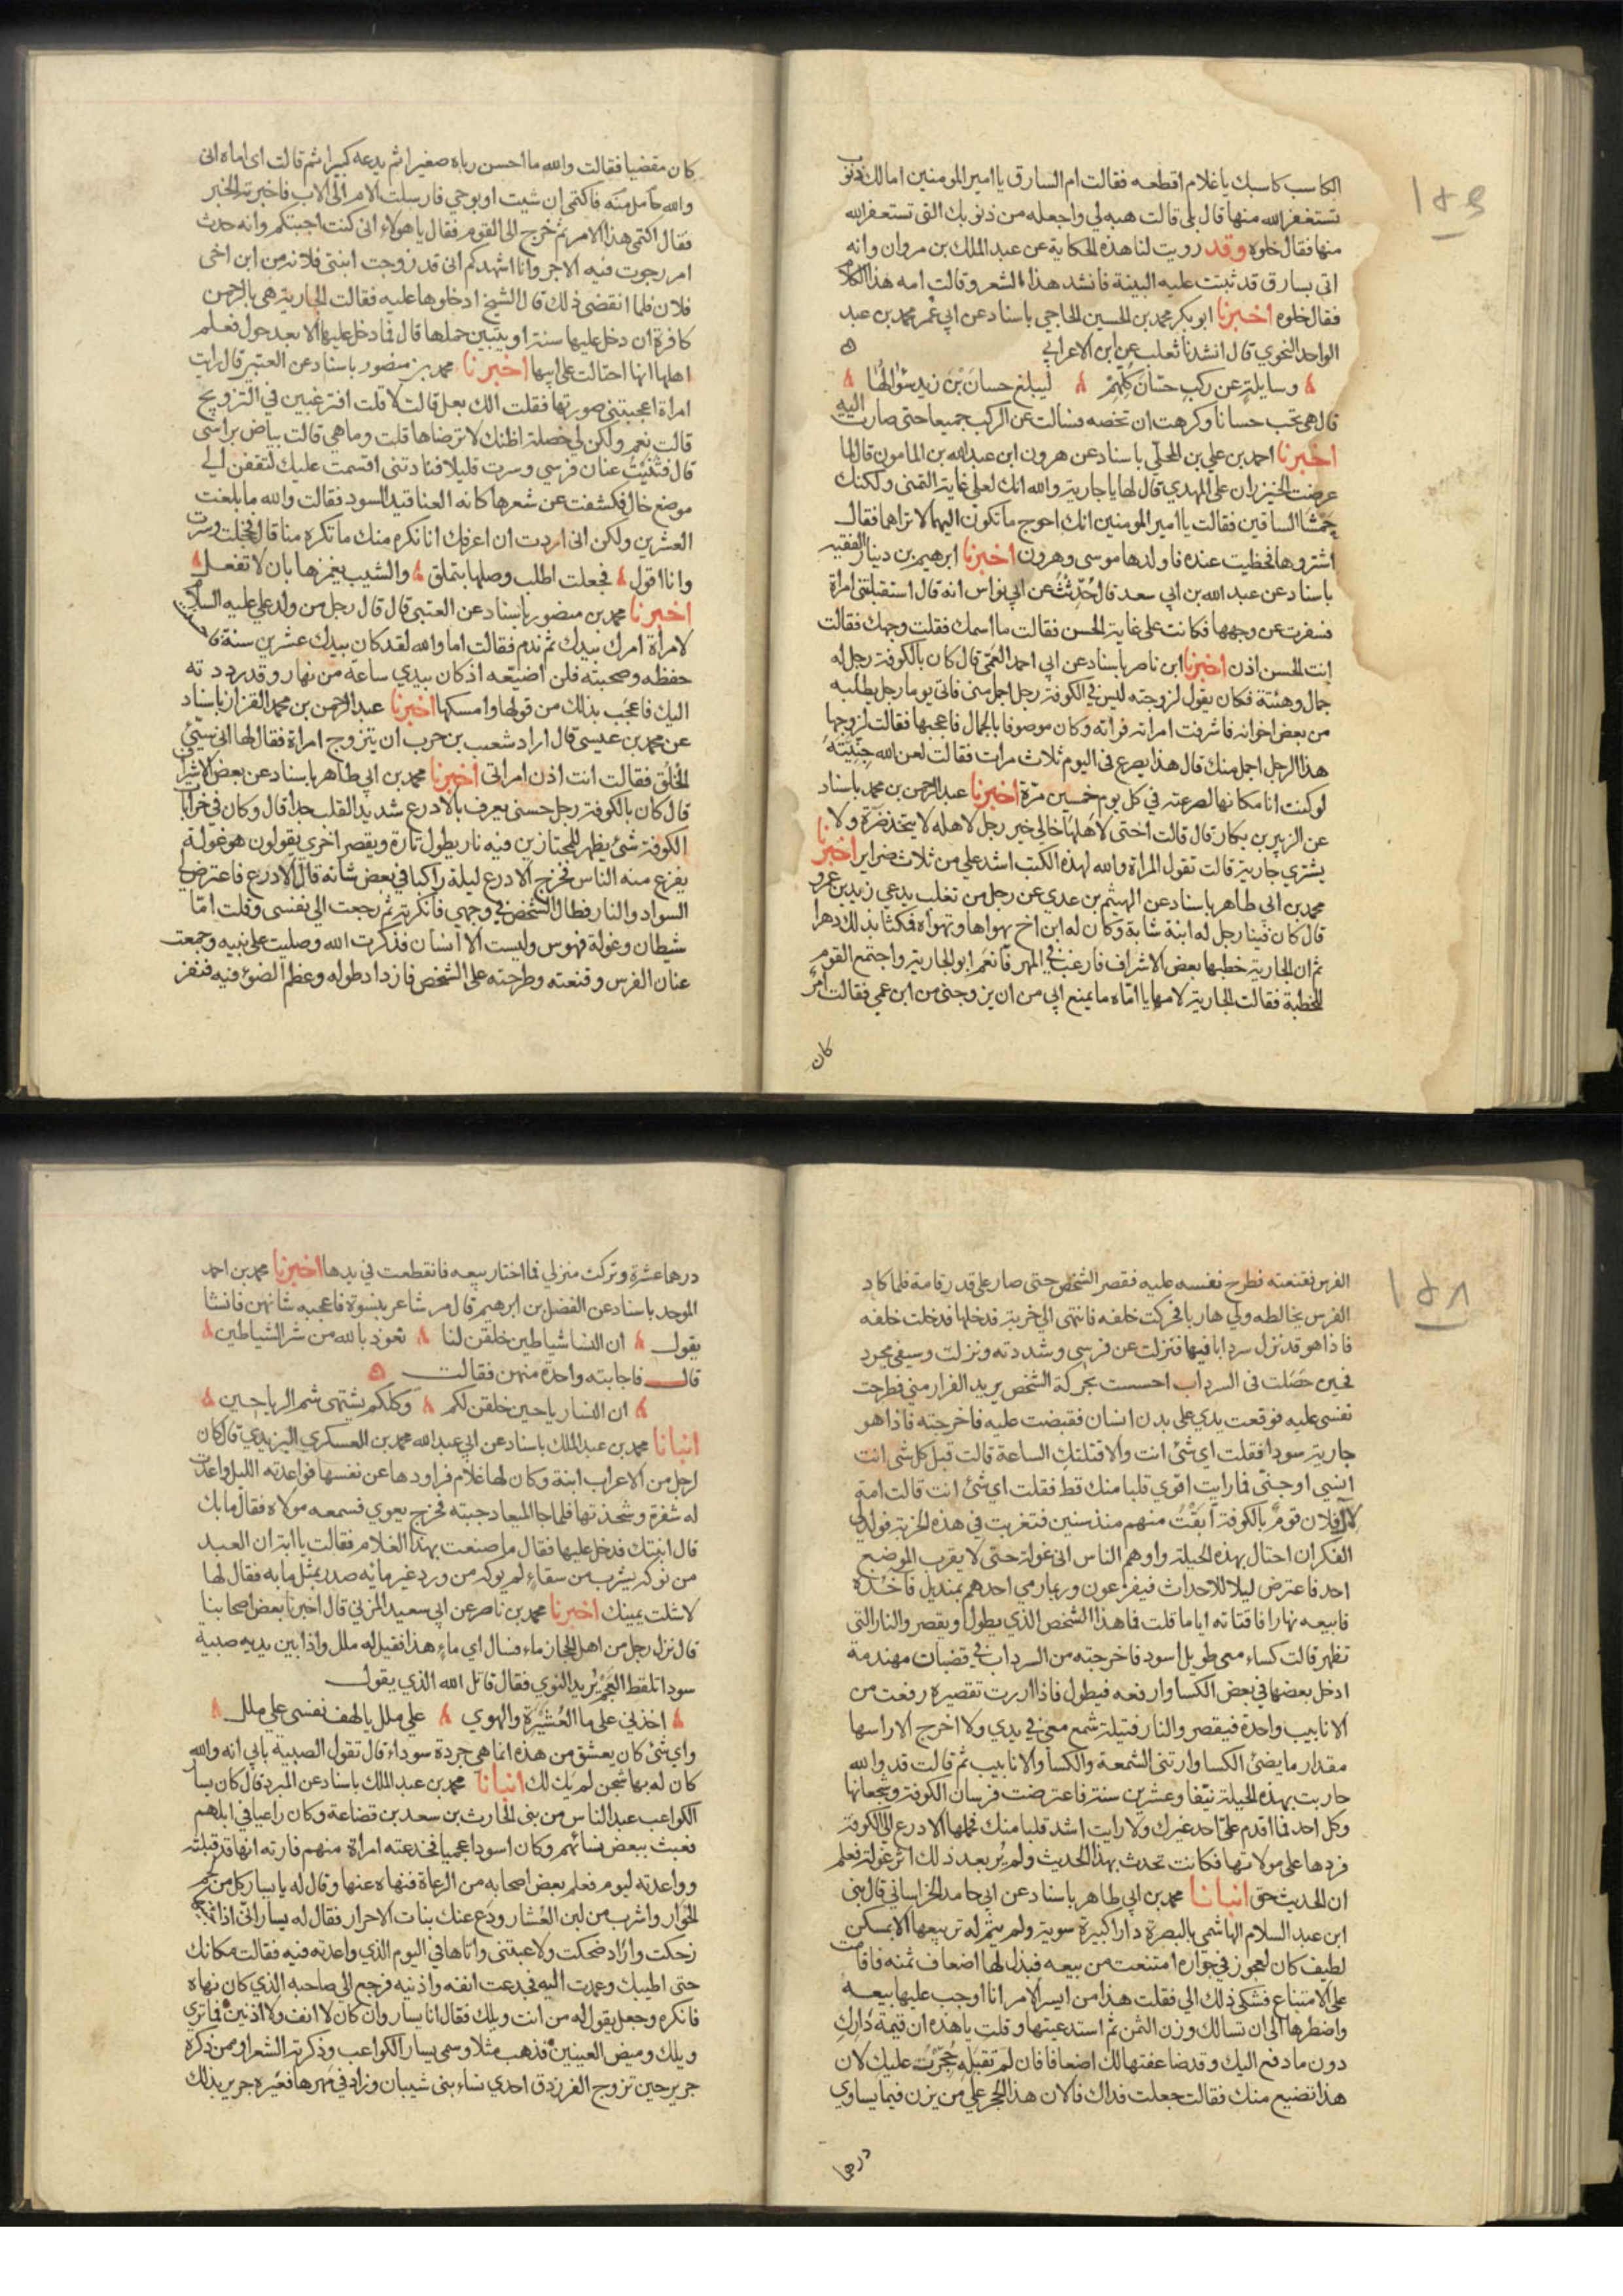 الكاسب كاسبك ياغلام اقطعه فقالت ام السارق يا امير المومنين امالك ذنوب
تستغفر الله منها قال بلى قالت هبه لي واجعله من ذنوبك التى تستغفر الله
منها فقال خلوه وقد رويت لنا هذه الحكاية عن عبد الملك بن مروان وانه
اتى بسارق قد ثبتت عليه البينة فانشد هذا الشعر وقالت امه هذا الكلام
فقال خلوه اخبرنا ابو بكر محمد بن الحسين الحاجي باسناد عن ابي عمر محمد بن عبد
الواحد النحوي قال انشدنا ثعلب عن ابن الاعرابي
وسايلة عن ركب حسان كلهم ليبلغ حسان بن زيد سؤالها
قال هي تحب حسانا وكرهت ان تخصه فسالت عن الركب جميعا حتى صارت اليه
اخبرنا احمد بن علي بن المجلّي باسناد عن هرون ابن عبد الله بن المامون قال لما
عرضت الخيزران على المهدي قال لها ياجارية والله انك لعلى غاية التمنى ولكنك
حمشا الساقين فقالت يا امير المومنين انك احوج ماتكون اليهما لا تراهما فقال
اشتروها فحظيت عنده فاولدها موسى وهرون اخبرنا ابرهيم بن دينار الفقيه
باسناد عن عبد الله بن ابي سعد قال حُدّثت عن ابي نواس انه قال استقبلتنى امراة
فسفرت عن وجهها فكانت على غاية الحسن فقالت ما اسمك فقلت وجهك فقالت
انت الحسن اذن اخبرنا ابن ناصر باسناد عن ابي احمد العمّى قال كان بالكوفة رجل له
جمال وهئتة فكان يقول لزوجته ليس في الكوفة رجل اجمل منى فاتي يوما رجل يطلبه
من بعض اخوانه فاشرفت امراته فراته وكان موصوفا بالجمال فاعجبها فقالت لزوجها
هذا الرجل اجمل منك قال هذا يصرع في اليوم ثلاث مرات فقالت لعن الله جِنّيّته
لو كنت انا مكانها لصرعته في كل يوم خمسين مرّة اخبرنا عبد الرحمن بن محمد باسناد
عن الزبير بن بكار قال قالت اختى لاهلها خالى خير رجل لاهله لا يتخذ ضرّة ولا
يشتري جارية قالت تقول المراة والله لهذه الكتب اشد علي من ثلاث ضراير اخبرنا
محمد بن ابي طاهر باسناد عن الهيثم بن عدي عن رجل من تغلب يدعي زيد بن عمرو
قال كان فينا رجل له ابنة شابة وكان له ابن اخ يهواها وتهواه فمكثا بذلك دهرا
ثم ان الجارية خطبها بعض الاشراف فارغب في المهر فانعم ابو الجارية واجتمع القوم
للخطبة فقالت الجارية لامها يا امّاه مايمنع ابي من ان يزوجنى من ابن عمي فقالت امرٌ
كان
كان مقضيا فقالت والله ما احسن رباه صغيرا ثم يدعه كبيرا ثم قالت اى اماه انى
والله حامل منه فاكتمى ان شيت او بوحي فارسلت الام الى الاب فاخبرته الخبر
فقال اكتمى هذا الامر ثم خرج الى القوم فقال ياهولاء انى كنت اجبتكم وانه حدث
امر رجوت فيه الاجر وانا اشهدكم انى قد زوجت ابنتى فلانه من ابن اخى
فلان فلما انقضى ذلك قال الشيخ ادخلوها عليه فقالت الجارية هى بالرحمن
كافرة ان دخل عليها سنة او يتبين حملها قال فما دخل عليها الا بعد حول فعلم
اهلها انها احتالت على ابيها اخبرنا محمد بن منصور باسناد عن العتبي قال رايت
امراة اعجبتنى صورتها فقلت الك بعل قالت لا قلت افترغبين في التزويج
قالت نعم ولكن لي خصلة اظنك لا ترضاها قلت وماهي قالت بياض براسى
قال فثنيت عنان فرسي وسرت قليلا فنادتنى اقسمت عليك لتقفن الي
موضع خال فكشفت عن شعرها كانه العناقيد السود فقالت والله مابلغت
العشرين ولكن انى اردت ان اعرفك انا نكره منك ما تكره منا قال فخجلت وسرت
وانا اقول فجعلت اطلب وصلها بتملق والشيب يغمزها بان لا تفعل
اخبرنا محمد بن منصور باسناد عن العتبي قال قال رجل من ولد علي عليه السلام
لامراة امرك بيدك ثم ندم فقالت اما والله لقد كان بيدك عشرين سنة فاحسنت
حفظه وصحبته فلن اضيّعه اذ كان بيدي ساعة من نهار وقد رددته
اليك فاعجب بذلك من قولها وامسكها اخبرنا عبد الرحمن بن محمد القزاز باسناد
عن محمد بن عيسى قال اراد شعيب بن حرب ان يتزوج امراة فقال لها انى سيّئ
الخُلُق فقالت انت اذن امراتى اخبرنا محمد بن ابي طاهر باسناد عن بعض الاشراف
قال كان بالكوفة رجل حسنى يعرف بالادرع شديد القلب جدا قال وكان في خراب
الكوفة شئ يظهر للمجتازين فيه نار يطول تارة ويقصر اخرى يقولون هو غولة
يفزع منه الناس فخرج الادرع ليلة راكبا في بعض شانه قال الادرع فاعترض لي
السواد والنار فطال الشخص في وجهي فانكرته ثم رجعت الي نفسى وقلت امّا
شيطان وغولة فهوس وليست الا انسان فذكرت الله وصليت على نبيه وجمعت
عنان الفرس وقنعته وطرحته على الشخص فازداد طوله وعظم الضوء فيه فنفر
الفرس فقنعته فطرح نفسه عليه فقصر الشخص حتى صار على قدر قامة فلما كاد
الفرس يخالطه ولي هاربا فحركت خلفه فانتهى الي خربة فدخلها فدخلت خلفه
فاذا هو قد نزل سردابا فيها فنزلت عن فرسي وشددته ونزلت وسيفي مجرد
فحين حَصَلت في السرداب احسست بحركة الشخص يريد الفرار مني فطرحت
نفسى عليه فوقعت يدي على بدن انسان فقبضت عليه فاخرجته فاذا هو
جارية سودا فقلت اي شئ انت والا قتلتك الساعة قالت قبل كل شي انت
انسي او جنّي فما رايت اقوي قلبا منك قط فقلت اي شئ انت قالت امة
لال فلان قومٌ بالكوفة ابقتُ منهم منذ سنين فتغربت في هذه الخربة فولد لي
الفكر ان احتال بهذه الحيلة واوهم الناس انى غولة حتى لا يقرب الموضع
احد فاعترض ليلا للاحداث فيفزعون وربما رمي احدهم بمنديل فاخذه
فابيعه نهارا فاقتاته اياما قلت فما هذا الشخص الذي يطول ويقصر والنار التى
تظهر قالت كساء معى طويل اسود فاخرجته من السرداب في قضبات مهندمة
ادخل بعضها في بعض الكسا وارفعه فيطول فاذا اردت تقصيره رفعت من
الانابيب واحدة فيقصر والنار فتيلة شمع معى في يدي ولا اخرج الا راسها
مقدار مايضئ الكسا وارتنى الشمعة والكسا والانابيب ثم قالت قد والله
جازت بهذه الحيلة نيّفا وعشرين سنة فاعترضت فرسان الكوفة وشجعانها
وكل احد فما اقدم علىّ احد غيرك ولا رايت اشد قلبا منك فحملها الادرع الى الكوفة
فردها على مولاتها فكانت تحدث بهذا الحديث ولم يُر بعد ذلك اثر غولة فعلم
ان الحديث حق انبانا محمد بن ابي طاهر باسناد عن ابي حامد الخراساني قال بنى
ابن عبد السلام الهاشمي بالبصرة دارا كبيرة سوية ولم يتم له تربيعها الا بمسكن
لطيف كان لعجوز في جواره امتنعت من بيعه فبذل لها اضعاف ثمنه فاقامت
على الامتناع فشكى ذلك الي فقلت هذا من ايسر الامر انا اوجب عليها بيعه
واضطرها الى ان تسالك وزن الثمن ثم استدعيتها وقلت ياهذه ان قيمة دارك
دون ما دفع اليك وقد ضاعفتها لك اضعافا فان لم تقبله حُجرت عليك لان
هذا تضيع منك فقالت جعلت فداك فالا كان هذا الحجر على من يزن فيما يساوي
درهما
درهما عشرة وتركت منزلي فما اختار بيعه فانقطعت في يدها اخبرنا محمد بن احمد
الموحد باسناد عن الفضل بن ابرهيم قال مر شاعر بنسوة فاعجبه شانهن فانشا
يقول ان النسا شياطين خلقن لنا نعوذ بالله من شر الشياطين
قال فاجابته واحدة منهن فقالت
ان النسا رياحين خلقن لكم وكلكم يشتهى شم الرياحين
انبانا محمد بن عبد الملك باسناد عن ابي عبد الله محمد بن العسكري اليزيدي قال كان
لرجل من الاعراب ابنة وكان لها غلام فراودها عن نفسها فواعدته الليل واعدت
له شفرة وشحذتها فلما جا الميعاد جبته فخرج يعوي فسمعه مولاه فقال مابك
قال ابنتك فدخل عليها فقال ما صنعت بهذا الغلام فقالت يا ابة ان العبد
من نوكه يشرب من سقاء لم يوكه من ورد غير مايه صدر بمثل مابه فقال لها
لا شلت يمينك اخبرنا محمد بن ناصر عن ابي سعيد المزني قال اخبرنا بعض اصحابنا
قال نزل رجل من اهل الحجاز ماء فسال اي ماء هذا فقيل له ملل واذا بين يديه صبية
سودا تلقط العجم يريد النوي فقال قاتل الله الذي يقول
اخذني على ما العُشَيْرَة والهوي على ملل يا لهف نفسى علي ملل
واي شئ كان يعشق من هذه انما هى جردة سوداء قال تقول الصبية يابي انه والله
كان له بها شجن لم يك لك انبانا محمد بن عبد الملك باسناد عن المبرد قال كان يسار
الكواعب عبد الناس من بنى الحارث بن سعد بن قضاعة وكان راعيا في ابلهم
فعبث ببعض نسائهم وكان اسود اعجميا فخدعته امراة منهم فارته انها قد قبلته
وواعدته ليوم فعلم بعض اصحابه من الرعاة فنهاه عنها وقال له يايسار كل من لحم
الحُوار واشرب من لبن العُشار ودع عنك بنات الاحرار فقال له يسار انى اذا جئتها
زحكت واراد ضحكت ولاعبتنى واتاها في اليوم الذي واعدته فيه فقالت مكانك
حتى اطيبك وعمدت اليه فجدعت انفه واذنيه فرجع الي صاحبه الذي كان نهاه
فانكره وجعل يقول له من انت ويلك فقال انا يسار وان كان لا انف ولا اذنين فما تري
ويلك وميض العينين فذهب مثلا وسمى يسار الكواعب وذكرته الشعرا وممن ذكره
جرير حين تزوج الفرزدق احدي نساء بنى شيبان وزاد في مهرها فعيّره جرير بذلك